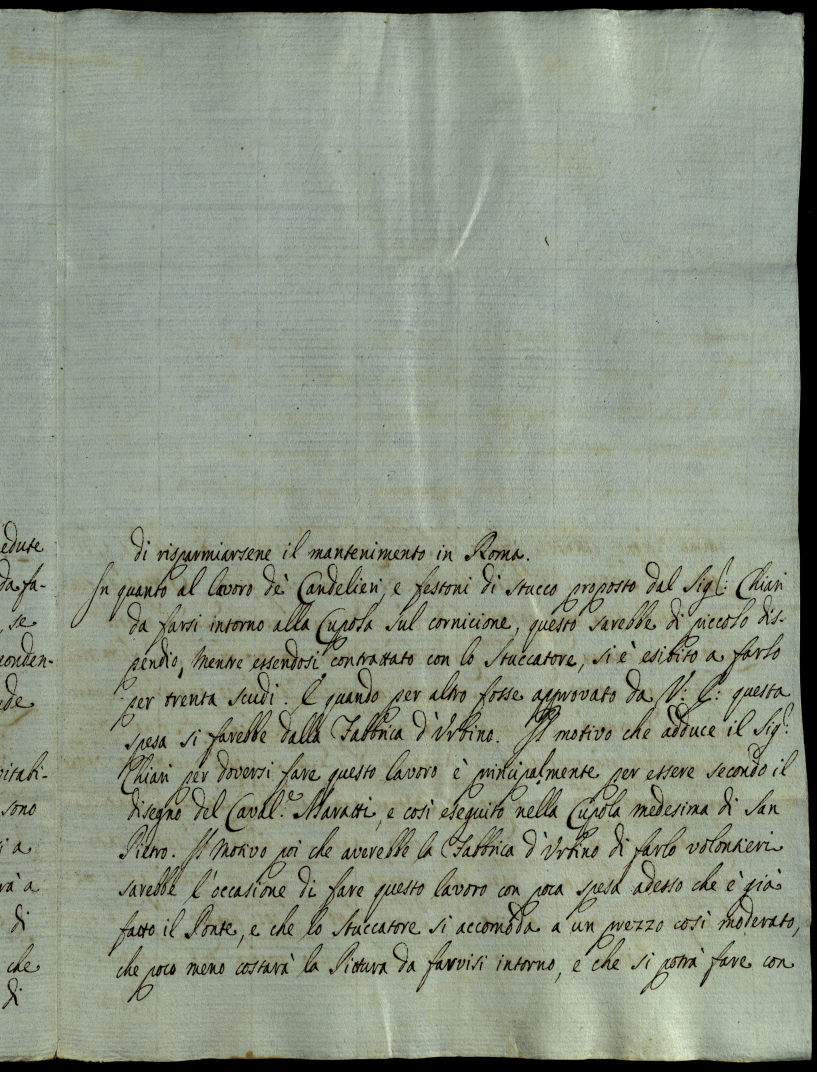 edute
da fa-
, se
ponden-
de
vitabi-
sono
i a
rà a
di
che
di
di risparmiarsene il mantenimento in Roma.
In quanto al lavoro de' Candelieri, e festoni di stucco proposto dal Sig.r: Chiari
da farsi intorno alla Cupola sul cornicione, questo sarebbe di piccolo dis-
pendio, mentre essendosi contrattato con lo Stuccatore, si è esibito a farlo
per trenta scudi. E quando per altro fosse approvato da V: E: questa
spesa si farebbe dalla Fabbrica d'Urbino. Il motivo che adduce il Sig.r:
Chiari per doversi fare questo lavoro è principalmente per essere secondo il
disegno del Caval.re Maratti, e così eseguito nella Cupola medesima di San
Pietro. Il Motivo poi che averebbe la Fabbrica d'Urbino di farlo volontieri
sarebbe l'occasione di fare questo lavoro con poca spesa adesso che è già
fatto il Ponte, e che lo Stuccatore si accomoda a un prezzo così moderato,
che poco meno costarà la Pittura da farvisi intorno, e che si potrà fare con